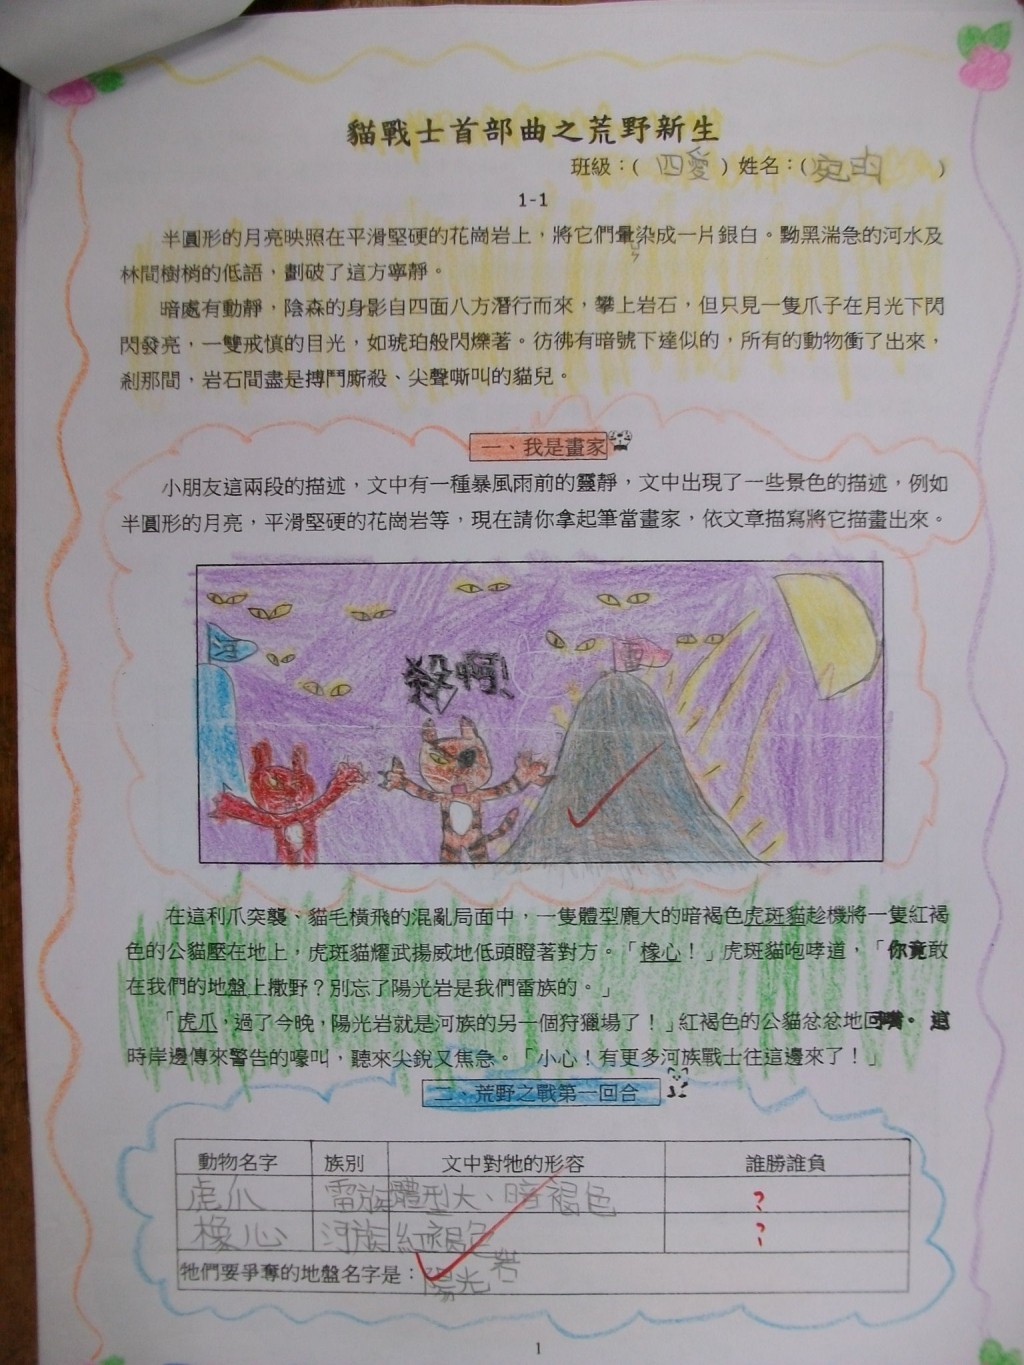 貓戰士首部曲之荒野新生
班級：( 四愛 ) 姓名：(宛昀 )
1-1
半圓形的月亮映照在平滑堅硬的花崗岩上，將它們暈染成一片銀白。黝黑湍急的河水及
林間樹梢的低語，劃破了這方寧靜。
暗處有動靜，陰森的身影自四面八方潛行而來，攀上岩石，但只見一隻爪子在月光下閃
閃發亮，一雙戒慎的目光，如琥珀般閃爍著。彷彿有暗號下達似的，所有的動物衝了出來，
剎那間，岩石間盡是搏鬥廝殺、尖聲嘶叫的貓兒。
一、我是畫家
小朋友這兩段的描述，文中有一種暴風雨前的靈靜，文中出現了一些景色的描述，例如
半圓形的月亮，平滑堅硬的花崗岩等，現在請你拿起筆當畫家，依文章描寫將它描畫出來。
河
雷
殺啊!
在這利爪突襲、貓毛橫飛的混亂局面中，一隻體型龐大的暗褐色虎斑貓趁機將一隻紅褐
色的公貓壓在地上，虎斑貓耀武揚威地低頭瞪著對方。「橡心！」虎斑貓咆哮道，「你竟敢
在我們的地盤上撒野？別忘了陽光岩是我們雷族的。」
「虎爪，過了今晚，陽光岩就是河族的另一個狩獵場了！」紅褐色的公貓忿忿地回嘴。這
時岸邊傳來警告的嚎叫，聽來尖銳又焦急。「小心！有更多河族戰士往這邊來了！」
二、荒野之戰第一回合
動物名字 族別 文中對牠的形容 誰勝誰負
虎爪 雷族 體型大、暗褐色 ?
橡心 河族 紅褐色 ?
牠們要爭奪的地盤名字是：陽光岩
1